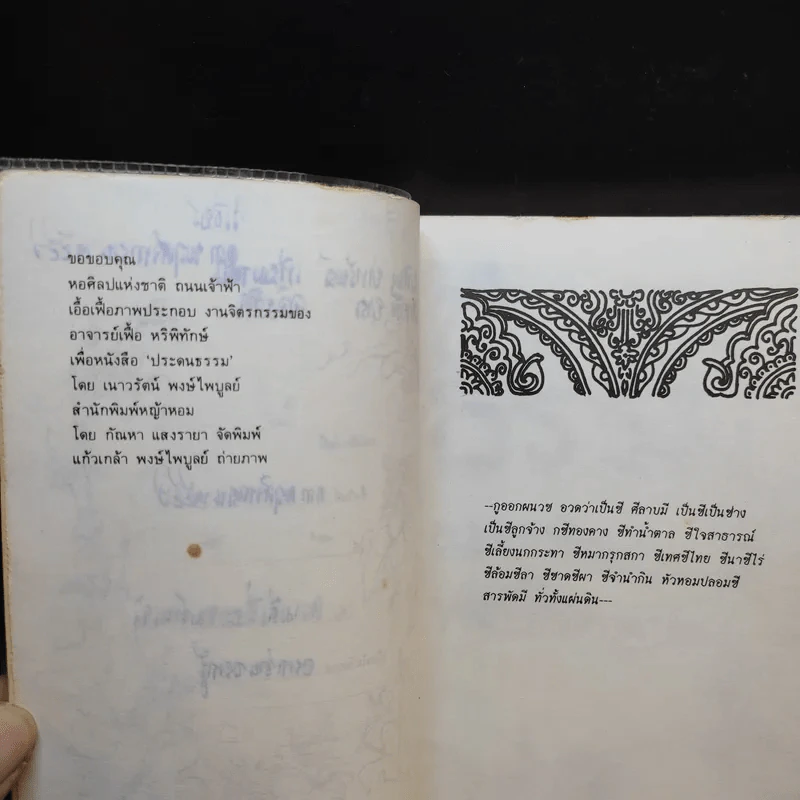 ขอขอบคุณ
หอศิลปแห่งชาติ ถนนเจ้าฟ้า
เอื้อเฟื้อภาพประกอบ งานจิตรกรรมของ
อาจารย์เฟื้อ หริพิทักษ์
เพื่อหนังสือ ‘ประดนธรรม’
โดย เนาวรัตน์ พงษ์ไพบูลย์
สำนักพิมพ์หญ้าหอม
โดย กัณหา แสงรายา จัดพิมพ์
แก้วเกล้า พงษ์ไพบูลย์ ถ่ายภาพ
--กูออกผนวช อวดว่าเป็นชี ศีลาบมี เป็นชีเป็นช่าง
เป็นชีลูกจ้าง กชีทองคาง ชีทำน้ำตาล ชีใจสาธารณ์
ชีเลี้ยงนกกระทา ชีหมากรุกสกา ชีเทศชีไทย ชีนาชีไร่
ชีล้อมชีลา ชีชาดชีผา ชีจำนำกิน หัวหอมปลอมชี
สารพัดมี ทั่วทั้งแผ่นดิน---